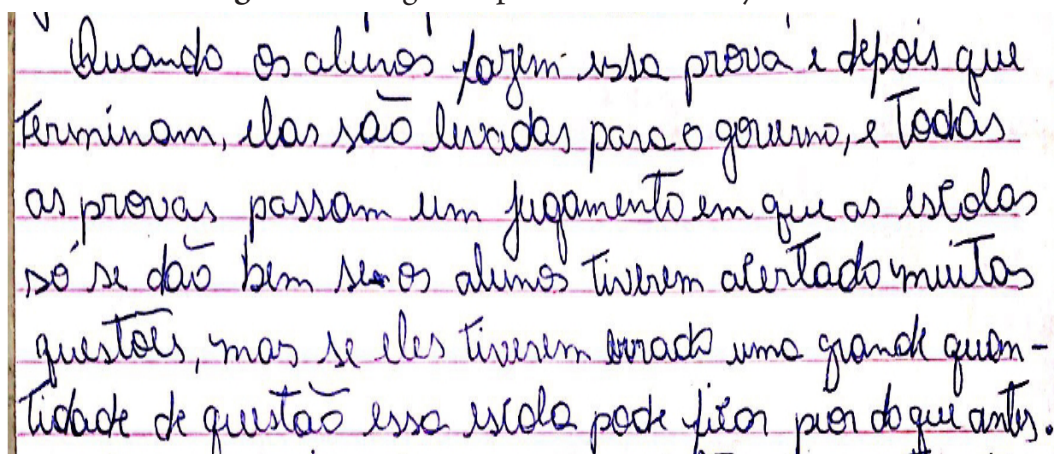 Quando os alunos fazem essa prova e depois que
terminam, elas são levadas para o governo, e todas
as provas passam um jugamento em que as escolas
só se dão bem se os alunos tiverem acertado muitas
questões, mas se eles tiverem errado uma grande quan-
tidade de questão essa escola pode ficar pior do que antes.